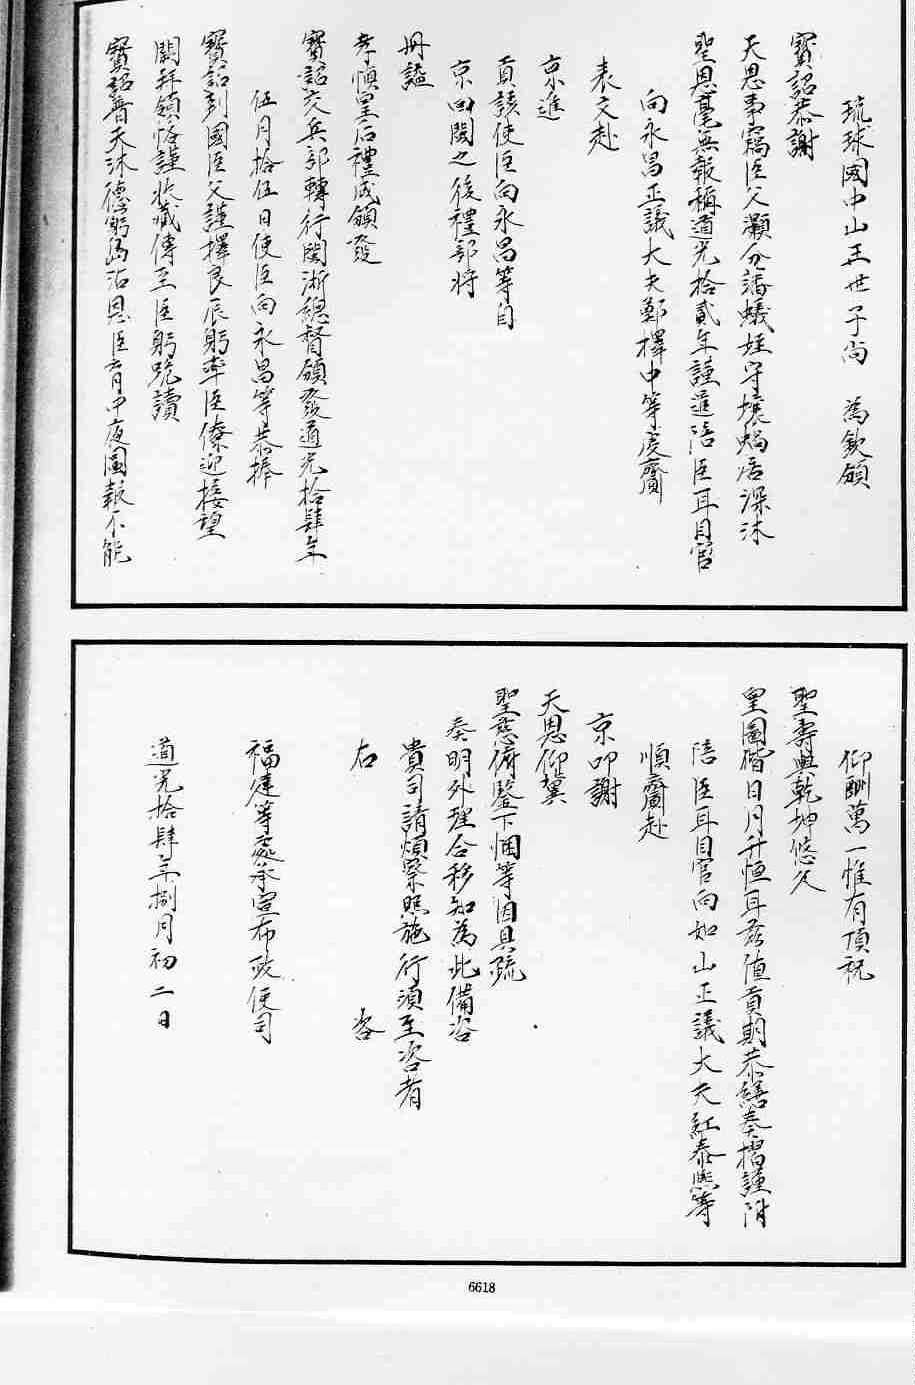 琉球國中山王世子尚　為欽頒
寶詔恭謝
天恩事竊臣父灝分藩蟻垤守壤蝸居深沐
聖恩毫無報稱道光拾貳年謹遣陪臣耳目官
向永昌正議大夫鄭擇中等虔齎
表文赴
京進
貢該使臣向永昌等自
京回閩之後禮部將
冊謚
孝慎皇后禮成頒發
寶詔交兵部轉行閩浙總督頒發道光拾肆年
伍月拾伍日使臣向永昌等恭捧
寶詔到國臣父謹擇良辰躬率臣僚迎接望
闕拜領恪謹收藏傳至臣躬跪讀
寶詔普天沐德窮島沾恩臣育中夜圖報不能
仰酬萬一惟有頂祝
聖壽與乾坤悠久
皇圖偕日月升恒耳茲值貢期恭繕奏摺謹附
陪臣耳目官向如山正議大夫紅泰熙等
順齎赴
京叩謝
天恩仰冀
聖慈俯鑒下悃等因具疏
奏明外理合移知為此備咨
貴司請煩察照施行須至咨者
右　咨
福建等處承宣布政使司
道光拾肆年捌月初二日
6618